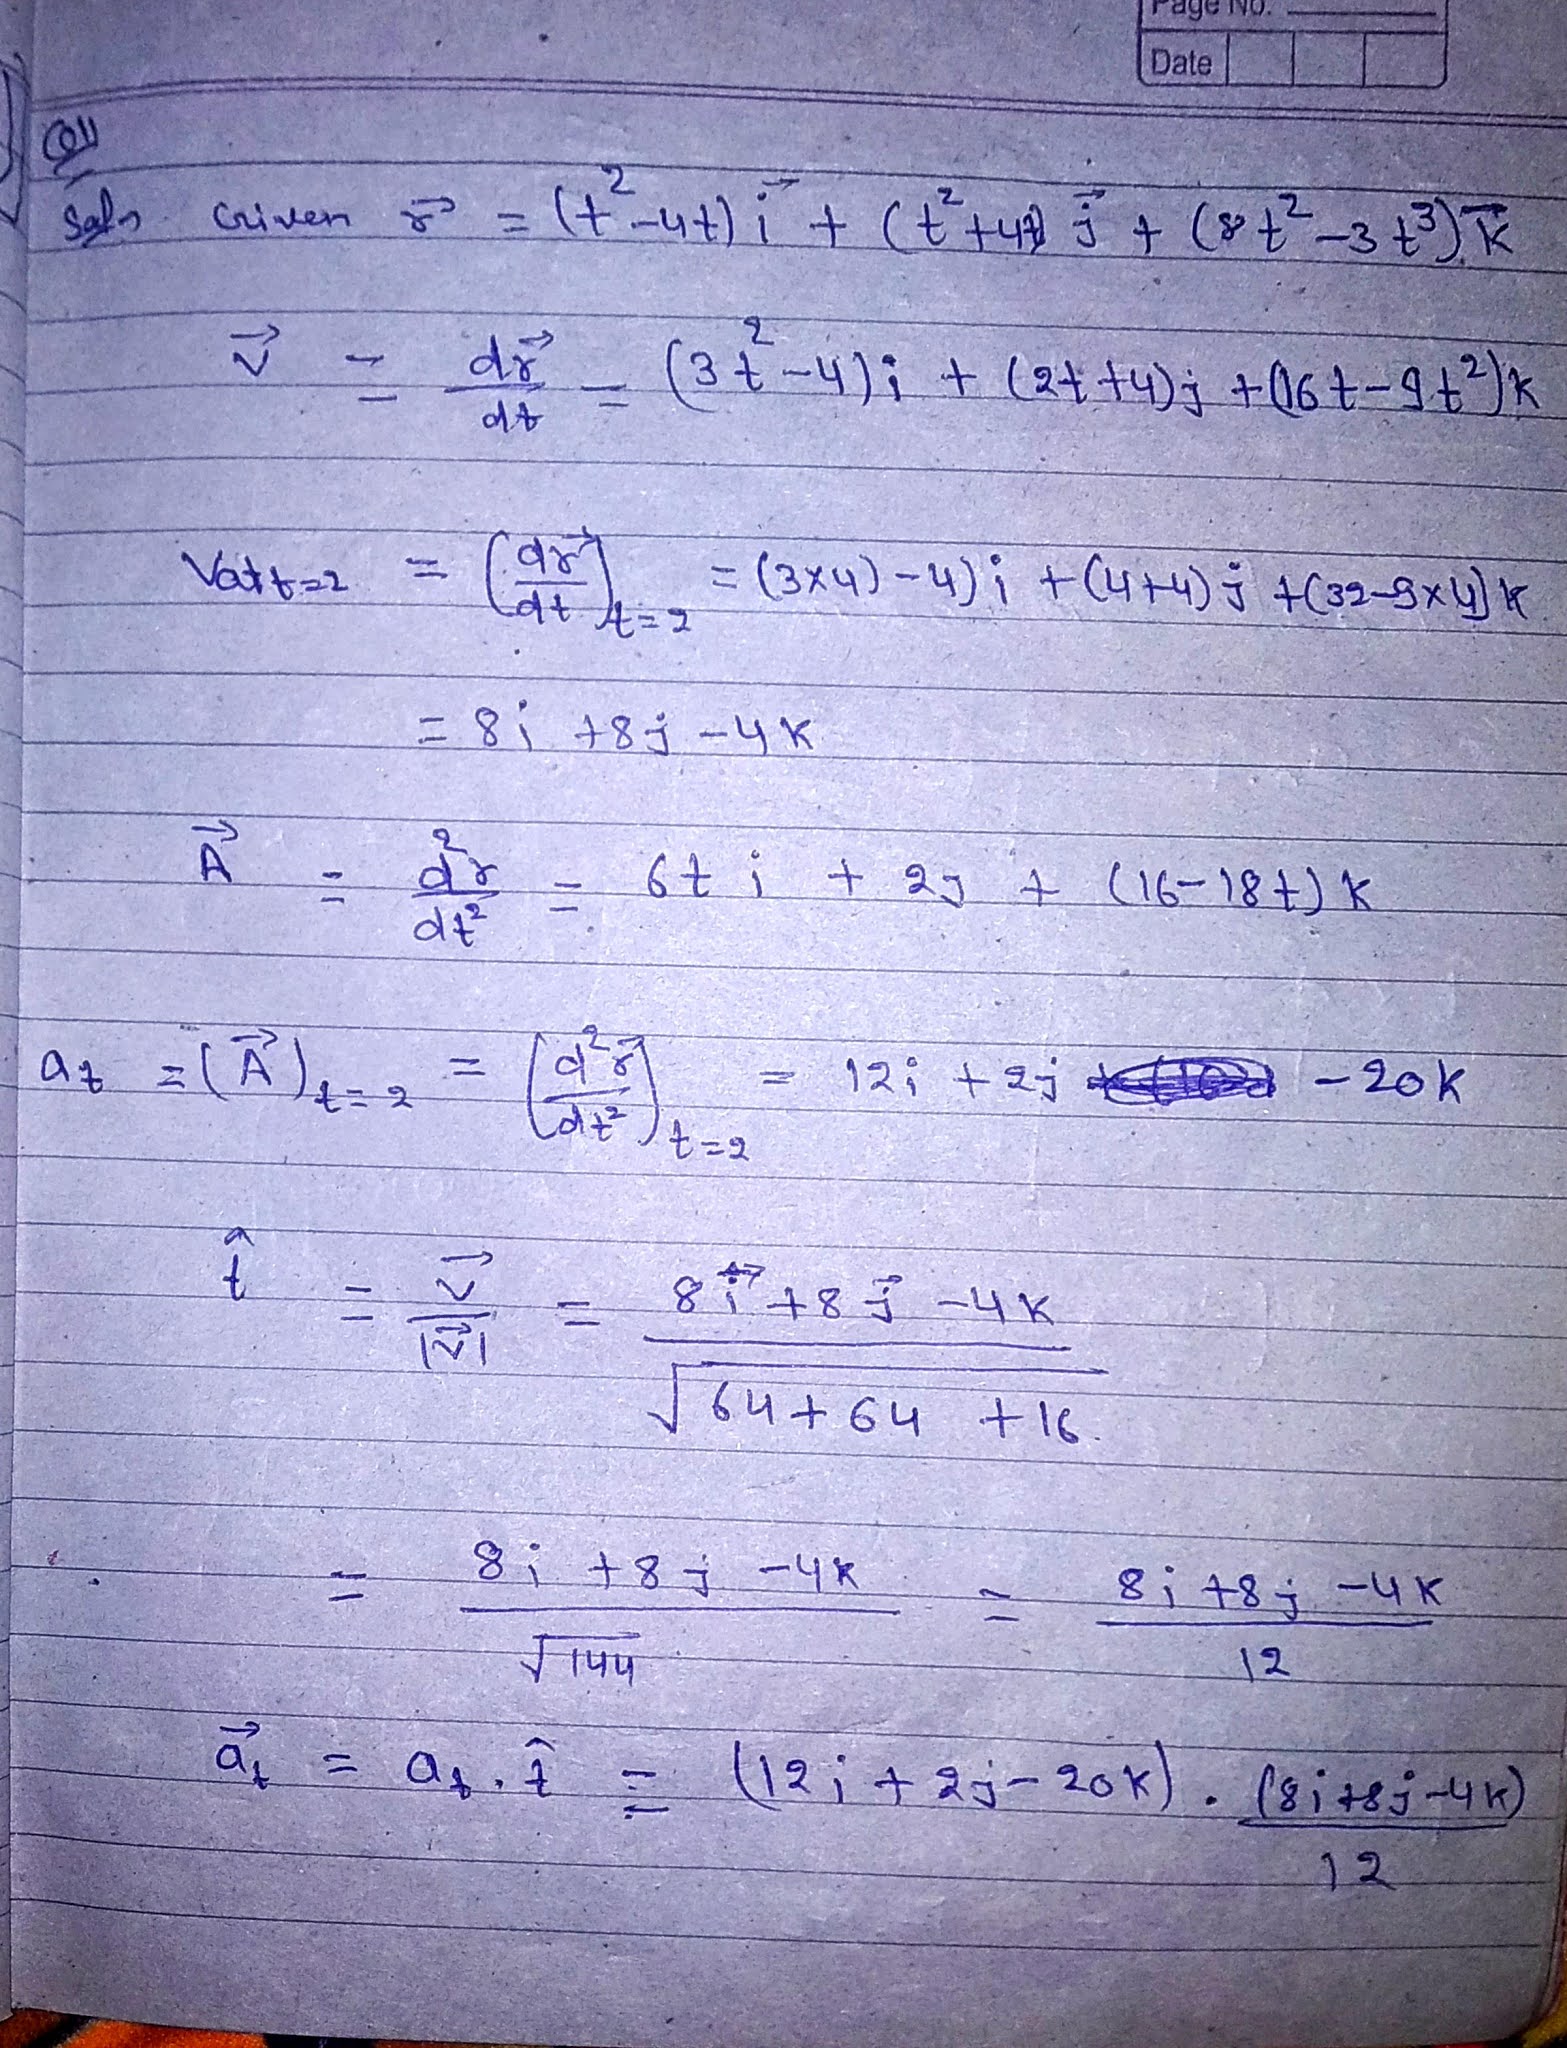 Page No.
Date
Soln Given r⃗ = (t²-4t) i⃗ + (t²+4t) j⃗ + (8t²-3t³) k⃗
v⃗ = dr⃗/dt = (3t²-4)i + (2t+4)j + (16t-9t²)k
V at t=2 = (dr⃗/dt)t=2 = (3x4)-4)i + (4+4)j + (32-9x4)k
= 8i +8j -4k
A⃗ = d²r/dt² = 6t i + 2j + (16-18t)k
at = (A⃗)t=2 = (d²r⃗/dt²)t=2 = 12i + 2j -20k
t̂ = v⃗/|v⃗| = (8i⃗ +8j⃗ -4k)/√64+64 +16
= (8i +8j -4k)/√144 = (8i +8j -4k)/12
a⃗t = at . t̂ = (12i + 2j - 20k) . (8i+8j-4k)/12